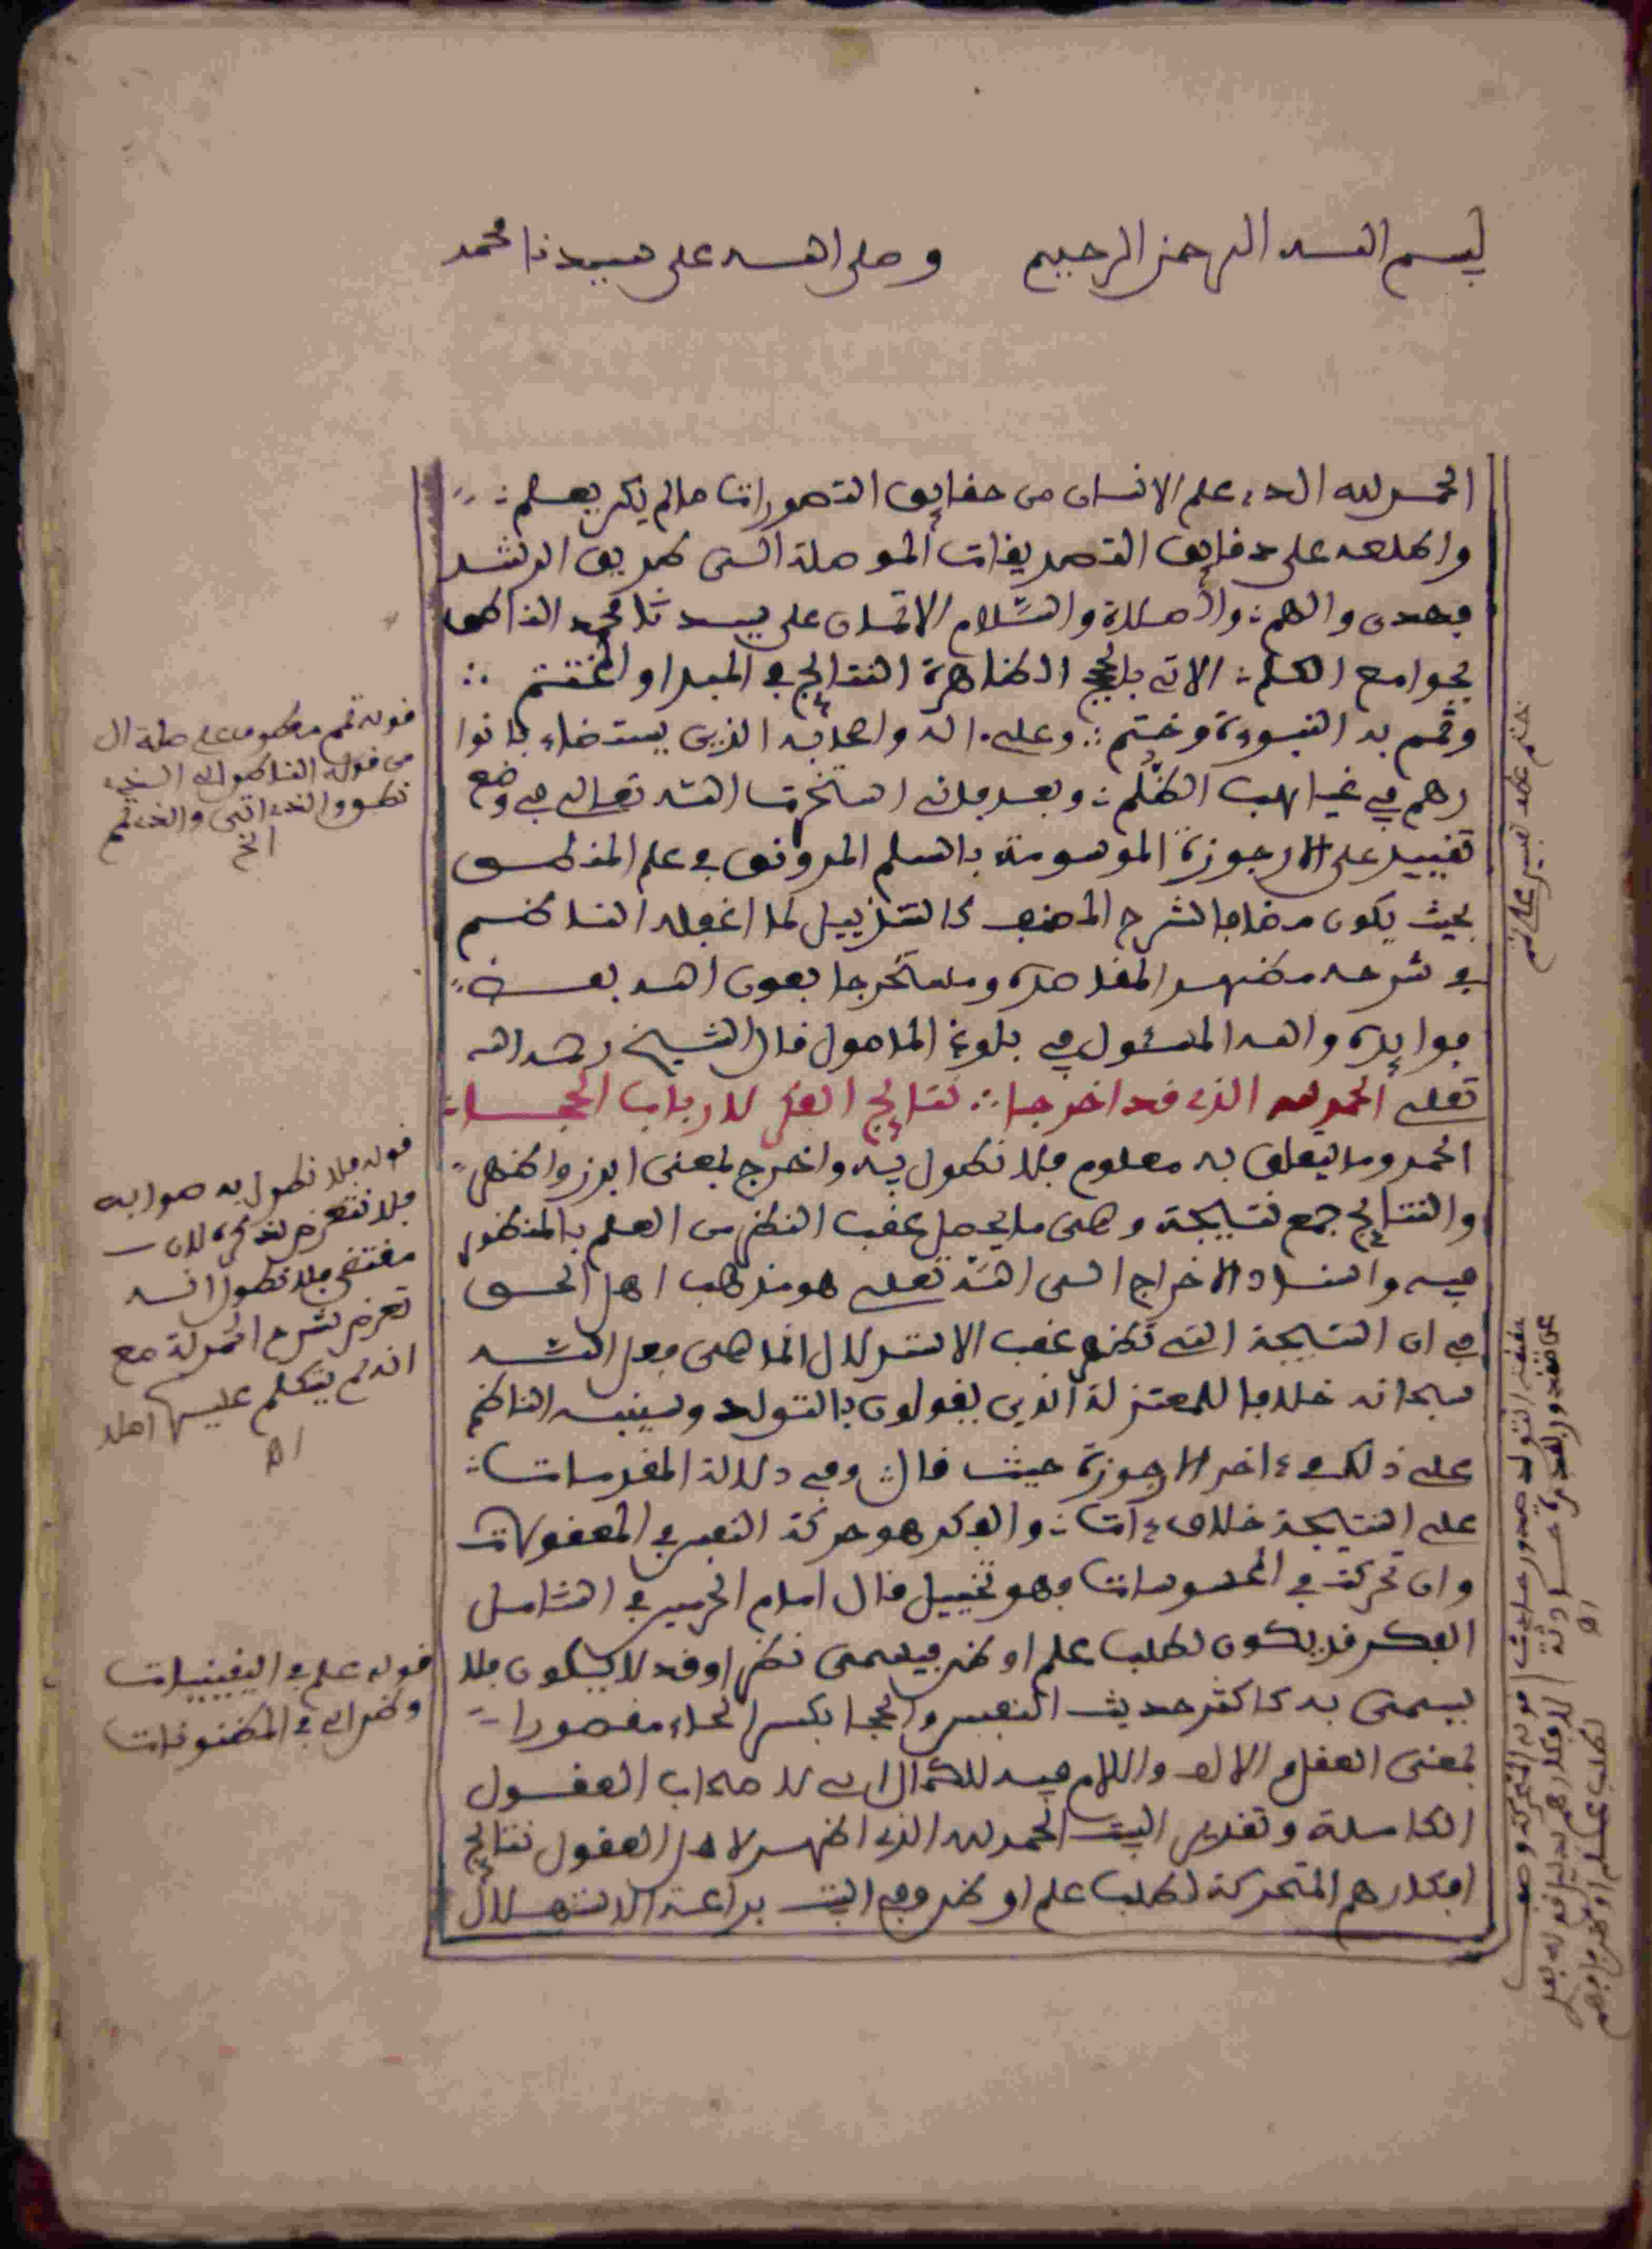 بسم الله الرحمن الرحيم وصلى الله على سيدنا محمد
الحمد لله الذي علم الانسان من حقايق التصورات ما لم يكن يعلم
واطلعه على دقايق التصديقات الموصلة الى طريق الرشد
فهدى والهم والصلاة والسلام الاتمان على سيدنا محمد الناطق
بجوامع الكلم الاتي بالحجج الظاهرة النتايج في المبدا والمختتم
وتمم به النبوءة وختم وعلى اله واصحابه الذين يستضاء بانوا
رهم في غياهب الظلم وبعد فاني استخرت الله تعالى في وضع
تقييد على الارجوزة الموسومة بالسلم المرونق في علم المنطق
بحيث يكون مضافا لشرح المصنف كالتذييل لما اغفله الناظم
في شرحه مظهرا لمقاصده ومستخرجا بعون الله بعض
فوايده والله المسئول في بلوغ المامول قال الشيخ رحمه الله
تعلى الحمد لله الذي قد اخرجا نتايج الفكر لارباب الحجا
الحمد وما يتعلق به معلوم فلا نطول به واخرج بمعنى ابرز واظهر
والنتايج جمع نتيجة وهي ما يحصل عقب النظر من العلم بالمنظور
فيه واسناد الاخراج الى الله تعلى هو مذهب اهل الحق
في ان النتيجة التي تظهر عقب الاستدلال انما هي فعل الله
سبحانه خلافا للمعتزلة الذين يقولون بالتولد وسينبه الناظم
على ذلك في ءاخر الارجوزة حيث قال وفي دلالة المقدمات
على النتيجة خلاف ءات والفكر هو حركة النفس في المعقولات
وان تحركت في المحسوسات فهو تخييل قال امام الحرمين في الشامل
الفكر قد يكون لطلب علم او ظن فيسمى نظرا وقد لا يكون فلا
يسمى به كاكثر حديث النفس والحجا بكسر الحاء مقصورا
بمعنى العقل والالف واللام فيه للكمال اي لاصحاب العقول
الكاملة وتقدير البيت الحمد لله الذي اظهر لاهل العقول نتايج
افكارهم المتحركة لطلب علم او ظن وفي البيت براعة الاستهلال
قوله تمم معطوف على صلة ال
من قوله الناطق اي الذي
نطق والذي اتى والذي تمم
الخ
قوله فلا نطول به صوابه
فلا نتعرض لذكره لان
مقتضى فلا نطول انه
تعرض لشرح الحمدلة مع
انه لم يتكلم عليها اصلا
اه
قوله علم في اليقينيات
وظن اي في المظنونات
ختم عطف تفسير على تمم
حقيقة التولد صدور حادث
عن مقدور بالقدرة الحادثة
اه
قوله المتحركة وصف
لافكارهم بدليل قوله بعد
لطلب علم او ظن فافهم